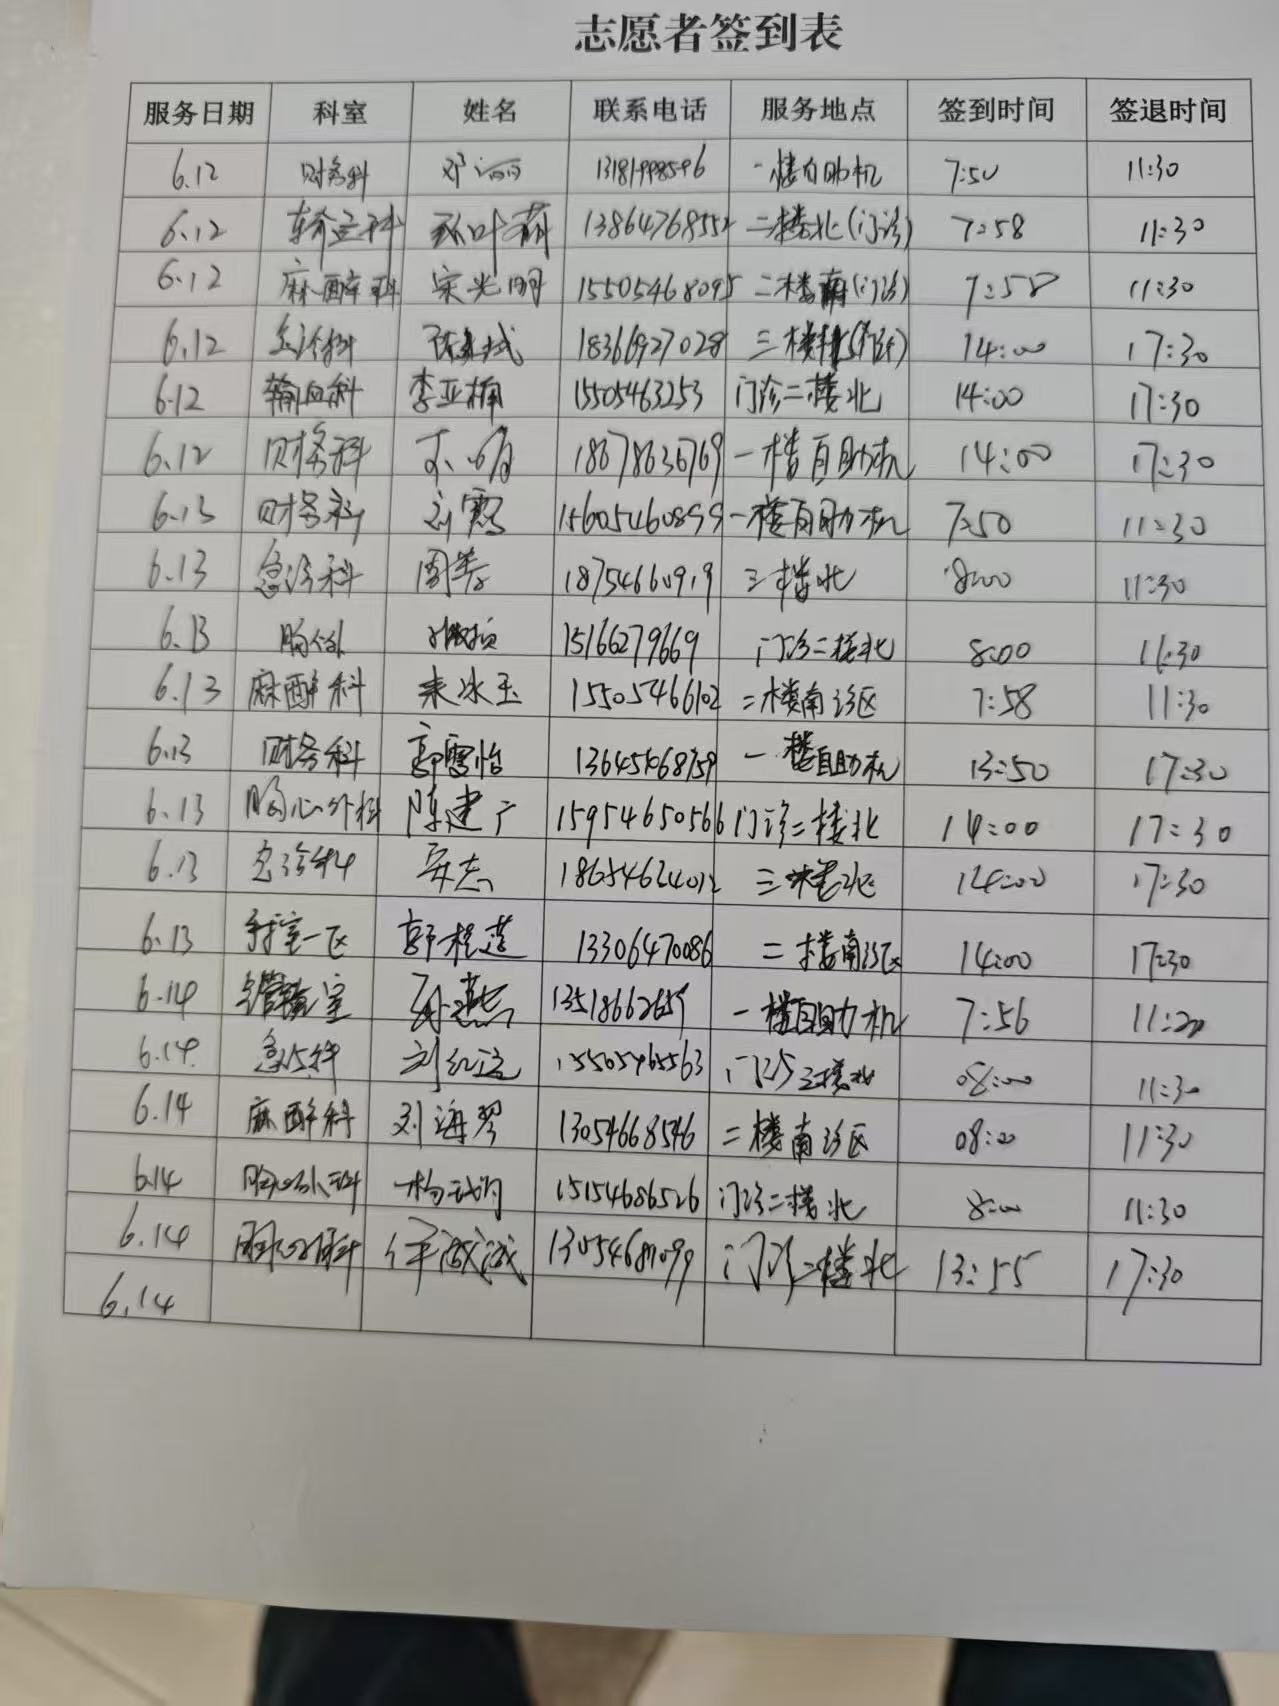 志愿者签到表
服务日期 科室 姓名 联系电话 服务地点 签到时间 签退时间
6.12 财务科 一楼自助机 7:50 11:30
6.12 输血科 13864768552 二楼北(门诊) 7:58 11:30
6.12 麻醉科 宋光明 15505468095 二楼南(门诊) 7:58 11:30
6.12 急诊科 18366927028 三楼 14:00 17:30
6.12 输血科 李亚楠 15505463253 门诊二楼北 14:00 17:30
6.12 财务科 18678636769 一楼自助机 14:00 17:30
6.13 财务科 刘霞 15605460899 一楼自助机 7:50 11:30
6.13 急诊科 周 18754660919 三楼北 8:00 11:30
6.13 胸外 15166279669 门诊二楼北 8:00 11:30
6.13 麻醉科 来冰玉 15505466102 二楼南诊区 7:58 11:30
6.13 财务科 郭雪怡 一楼自助机 13:50 17:30
6.13 胸心外科 陈建广 15954650566 门诊二楼北 14:00 17:30
6.13 急诊科 安志 三楼北 14:00 17:30
6.13 手术室一区 郭桂莲 13306470086 二楼南诊区 14:00 17:30
6.14 孙燕 一楼自助机 7:56 11:20
6.14 急诊科 15505465563 门诊三楼北 08:00 11:30
6.14 麻醉科 刘海琴 13054668546 二楼南诊区 08:00 11:30
6.14 胸心外科 15154686526 门诊二楼北 8:00 11:30
6.14 门诊二楼北 13:55 17:30
6.14